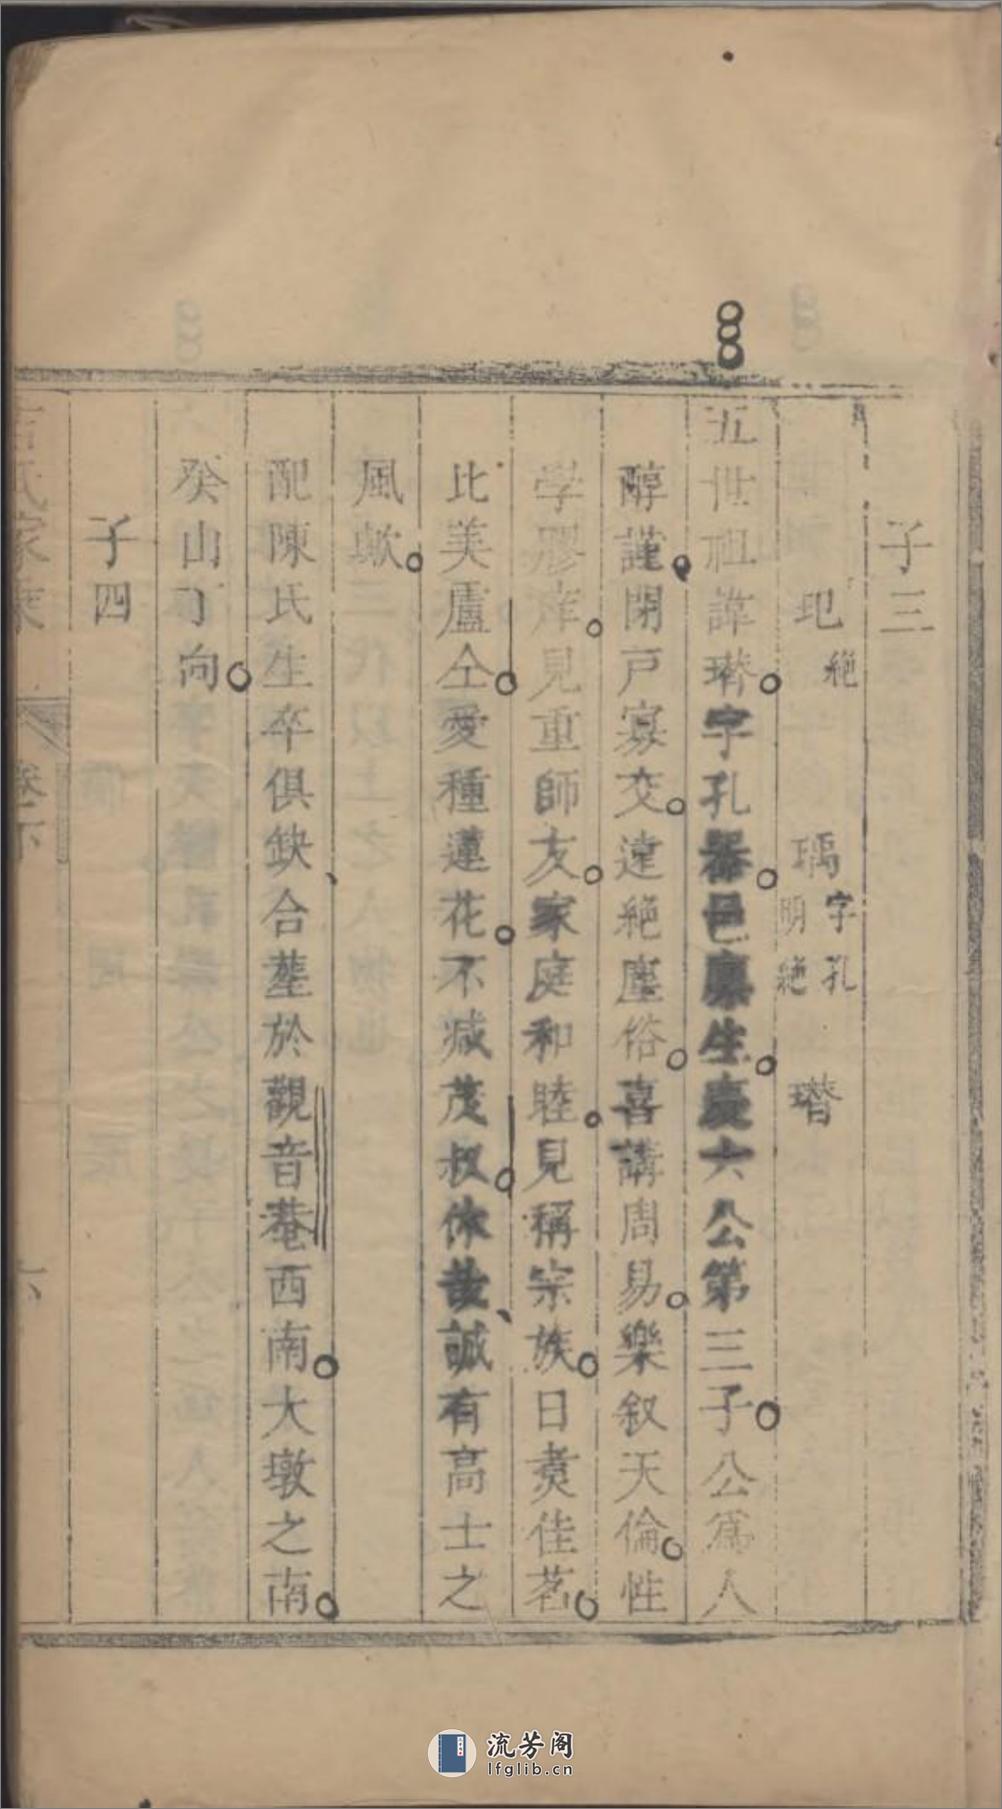 子三
玘 絕 瑀 字孔明絕 瓚
五世祖諱瓚字孔器邑廩生慶六公第三子公爲人
醇謹閉戸寡交遠絕塵俗喜講周易樂叙天倫性
學膠庠見重師友家庭和睦見稱宗族日煑佳茗
比美廬仝愛種蓮花不减茂叔休哉誠有高士之
風歟
配陳氏生卒俱缺合塟於觀音菴西南大墩之南
癸山丁向
子四
氏家乗 卷下 六
流芳阁
lfglib.cn